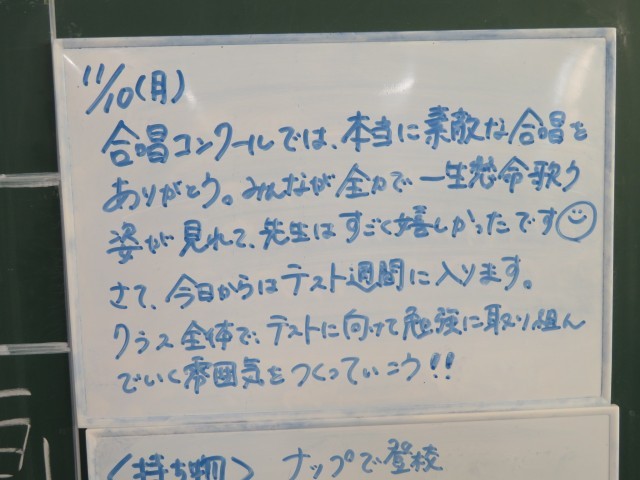 11/10(月)
合唱コンクールでは、本当に素敵な合唱を
ありがとう。みんなが全力で一生懸命歌う
姿が見れて、先生はすごく嬉しかったです
さて、今日からはテスト週間に入ります。
クラス全体で、テストに向けて勉強に取り組ん
でいく雰囲気をつくっていこう!!
〈持ち物〉 ナップで登校